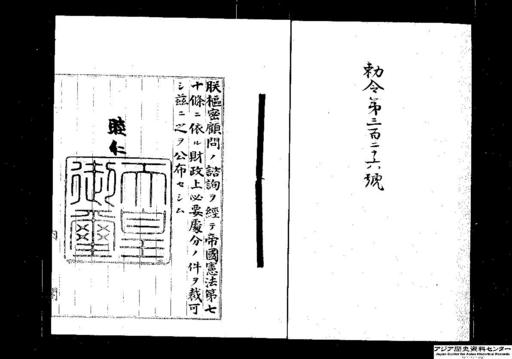 勅令第三百二十六號
朕樞密顧問ノ諮詢ヲ經テ帝國憲法第七
十條ニ依ル財政上必要處分ノ件ヲ裁可
シ茲ニ之ヲ公布セシム
睦仁
天皇
御璽
内閣
アジア歴史資料センター
Japan Center for Asian Historical Records